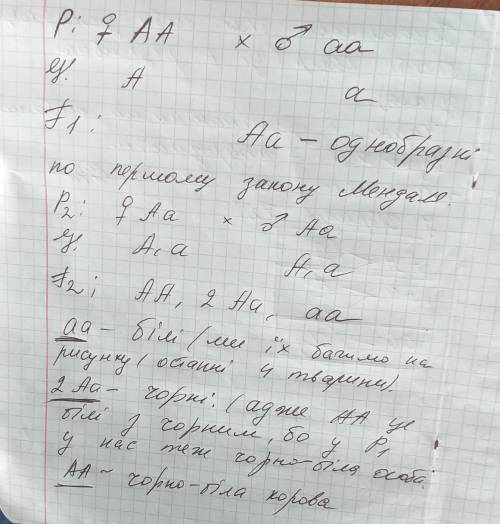 P: ♀ AA × ♂ aa
G. A a
F1: Aa – однобразні
по первому закону Менделя.
P2: ♀ Aa × ♂ Aa
G. A, a A, a
F2: AA, 2 Aa, aa
aa – білі (ми їх бачимо на
рисунку (останні 4 тварини).
2 Aa – чорні: (адже AA це
білі з чорним, бо у P1
у нас теж чорно-біла особа.
AA – чорно-біла корова